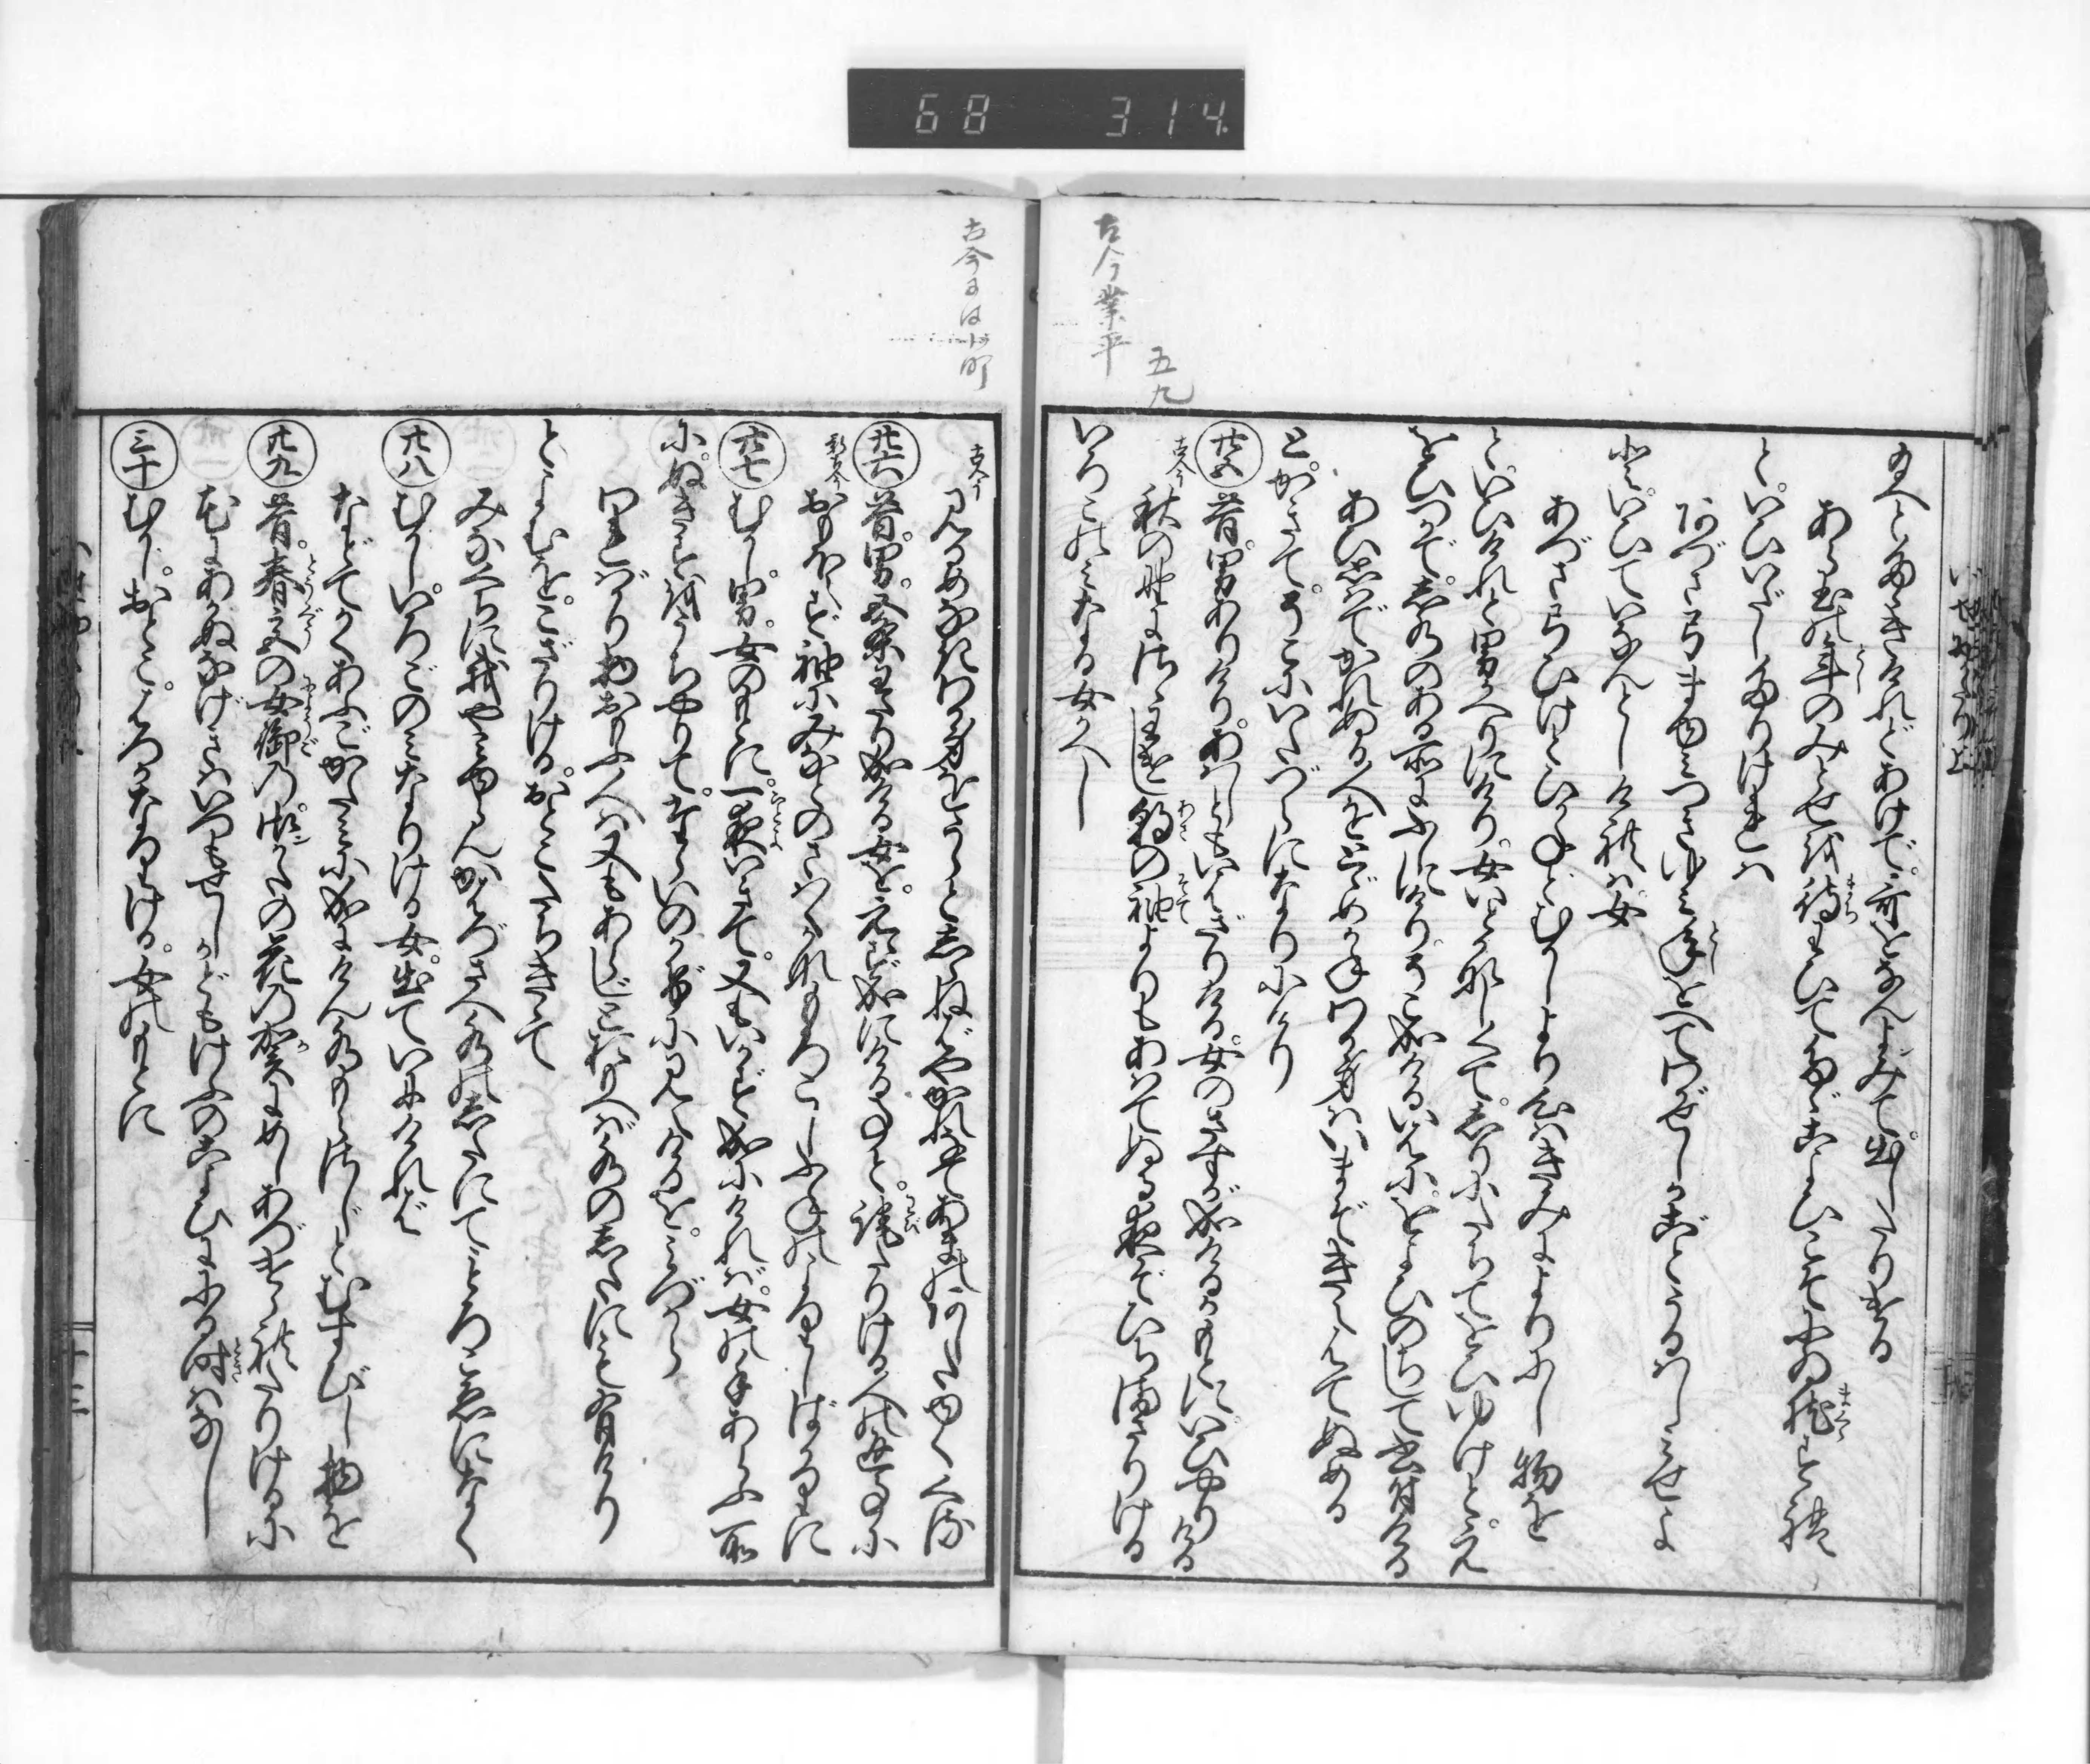 給へとたゝきけれどあけで。哥をなんよみて。出したりける
あら玉の年のみとせを待わひてたゞこよひこそにゐ枕すれ
といひいだしたりければ
あづさ弓ま弓つき弓年をへてわがせしがごとうるはしみせよ
といひていなんとしければ。女
あづさ弓ひけどひかねどむかしより心はきみによりにし物を
といひけれど男かへりにけり。女いとかなしくて。しりにたちてをひゆけど。え
をひつかで。し水のある所にふしにけり。そこ成けるいはに。をよびのちして書付ける
あひ思はでかれぬる人をとゞめかねわか身はいまぞきえはてぬめる
とかきて。そこにいたづらになりにけり
五九
廿五 昔。男ありけり。あはじともいはざりける。女のさすが成けるがもとに。いひやりける
古今 秋の野にさゝわけし朝の袖よりもあはでぬる夜ぞひぢまさりける
古今業平
いろこのみなる女かへし
古今には小町
古今 見るめなきわか身をうらとしらねばやかれなであまのあしたゆくくる
廿六 昔。男。五条わたり成ける女を。えゞ成にける事と。詫たりける人の返事に
新古今 おもほえず袖にみなとのさはぐかなもろこしふねのよりしばかりに
廿七 むかし。男。女のもとに。一夜いきて。又もいかず成にければ。女の手あらふ所
にぬきすをうちやりて。たらいのかげに見えけるを。みづから
我ばかり物おもふ人は又もあらじとおもへば水の下にも有けり
とよむを。こざりける。おとこたちきゝて
みなくちに我や見ゆらんかはづさへ水の下にてもろ声になく
廿八 むかし。いろごのみなりける女。出ていにければ
などてかくあふごかたみに成にけん水もらさじとむすびし物を
廿九 昔。春宮の女御の御かたの花の賀にめしあづけられたりけるに
花にあかぬなげきはいつもせしかどもけふのこよひににる時はなし
三十 むかし。おとこ。はつかなりける。女のもとに
68 314